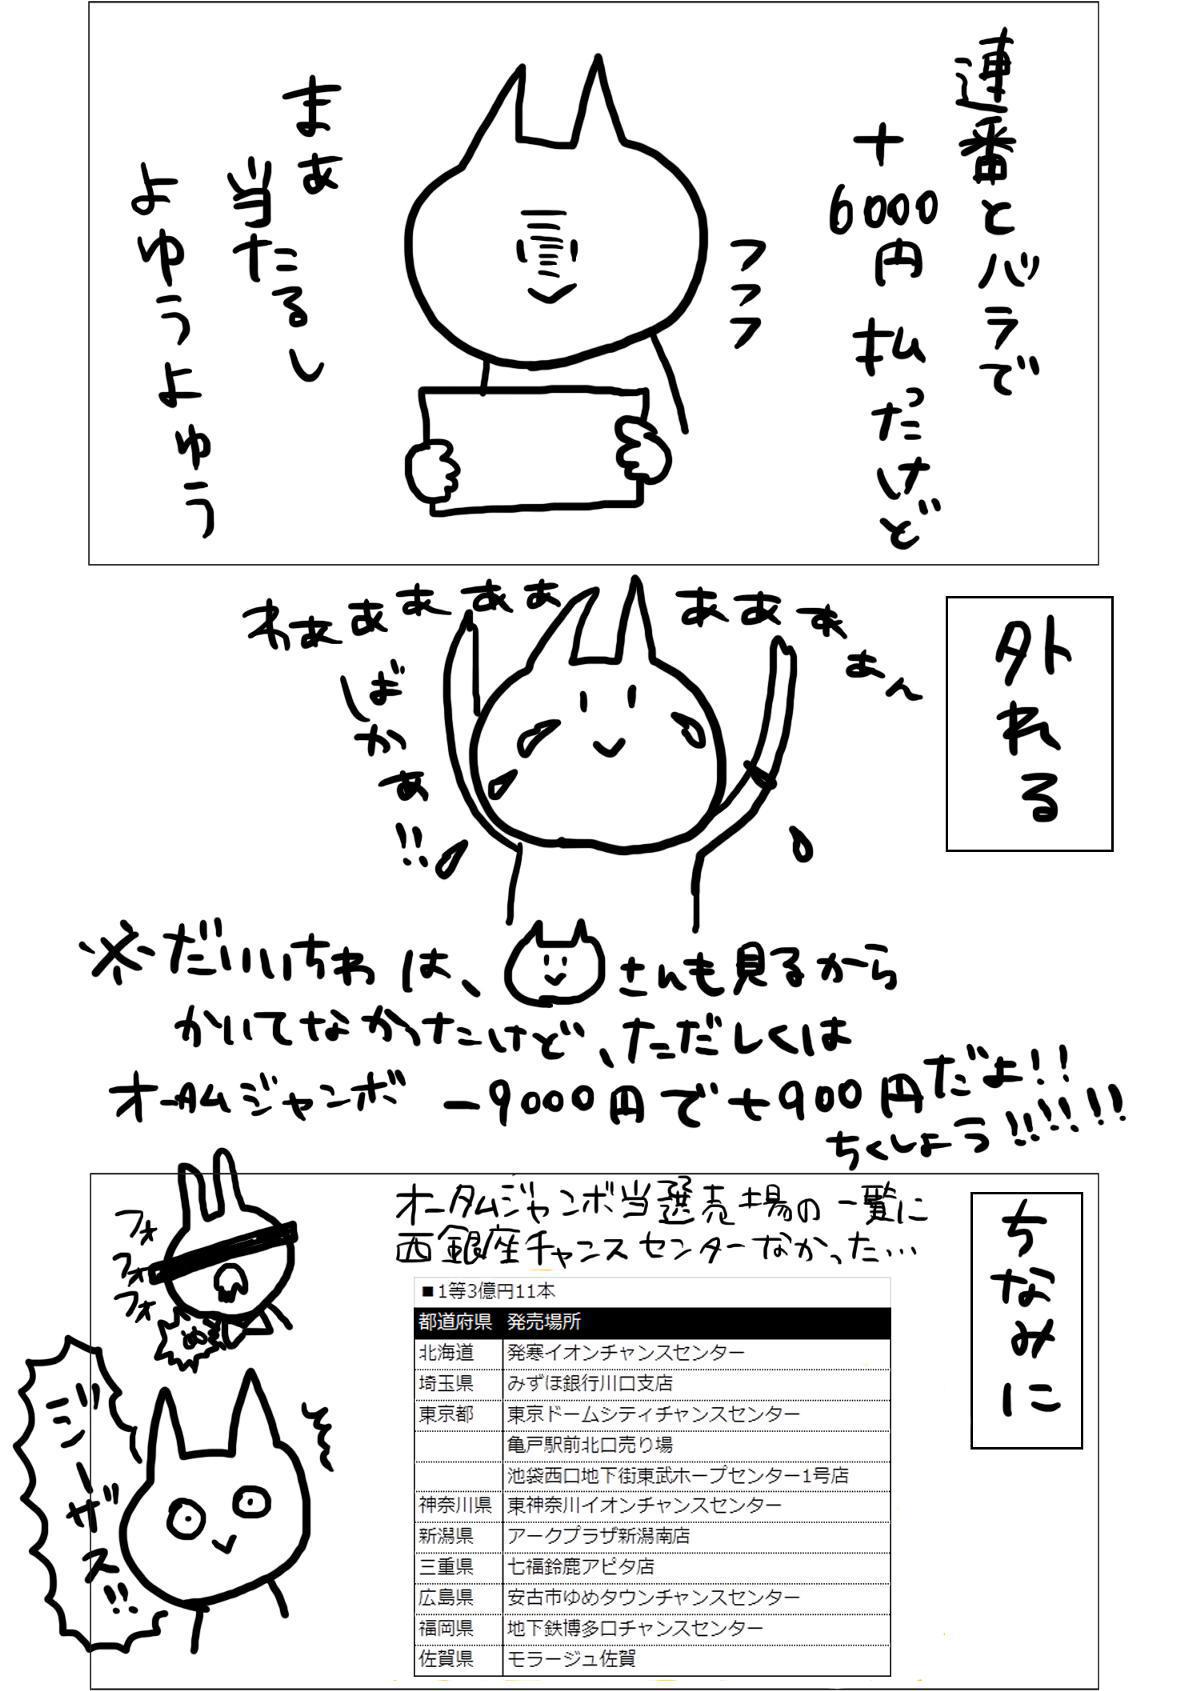 連番とバラで
＋6000円
払ったけど
フフフ
まぁ
当たるし
よゆうよゆう
外れる
わぁぁぁぁぁぁぁぁぁん
ばかぁ!!
※だいいちわは、さんも見るから
かいてなかったけど、ただしくは
オータムジャンボ －9000円で＋900円だよ!!
ちくしょう!!!!!!
ちなみに
オータムジャンボ当選売場の一覧に
西銀座チャンスセンターなかった…
フォ
フォ
フォ
ジーザス!!
■1等3億円11本
都道府県 発売場所
北海道 発寒イオンチャンスセンター
埼玉県 みずほ銀行川口支店
東京都 東京ドームシティチャンスセンター
亀戸駅前北口売り場
池袋西口地下街東武ホープセンター1号店
神奈川県 東神奈川イオンチャンスセンター
新潟県 アークプラザ新潟南店
三重県 七福鈴鹿アピタ店
広島県 安古市ゆめタウンチャンスセンター
福岡県 地下鉄博多口チャンスセンター
佐賀県 モラージュ佐賀